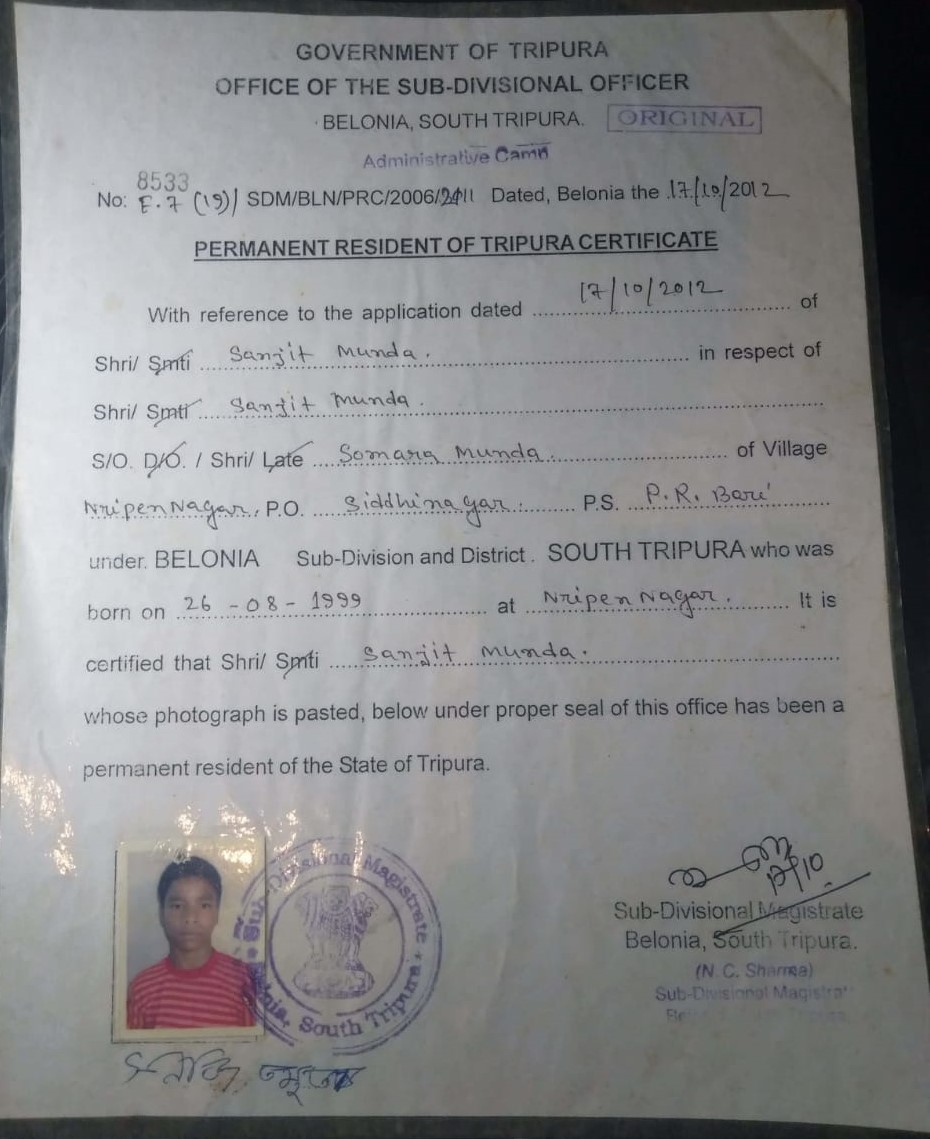 GOVERNMENT OF TRIPURA
OFFICE OF THE SUB-DIVISIONAL OFFICER
BELONIA, SOUTH TRIPURA. ORIGINAL
Administrative Camp
8533
No: F.7 (19)/ SDM/BLN/PRC/2006/2011 Dated, Belonia the 17/10/2012
PERMANENT RESIDENT OF TRIPURA CERTIFICATE
With reference to the application dated 17/10/2012 of
Shri/ Smti Sanjit Munda. in respect of
Shri/ Smti Sanjit Munda.
S/O. D/O. / Shri/ Late Somara Munda. of Village
Nripen Nagar, P.O. Siddhinagar. P.S. P.R. Bari
under. BELONIA Sub-Division and District. SOUTH TRIPURA who was
born on 26-08-1999 at Nripen Nagar. It is
certified that Shri/ Smti Sanjit Munda.
whose photograph is pasted, below under proper seal of this office has been a
permanent resident of the State of Tripura.
Sub-Divisional Magistrate
South Tripura
17/10
Sub-Divisional Magistrate
Belonia, South Tripura.
(N. C. Sharma)
Sub-Divisional Magistra